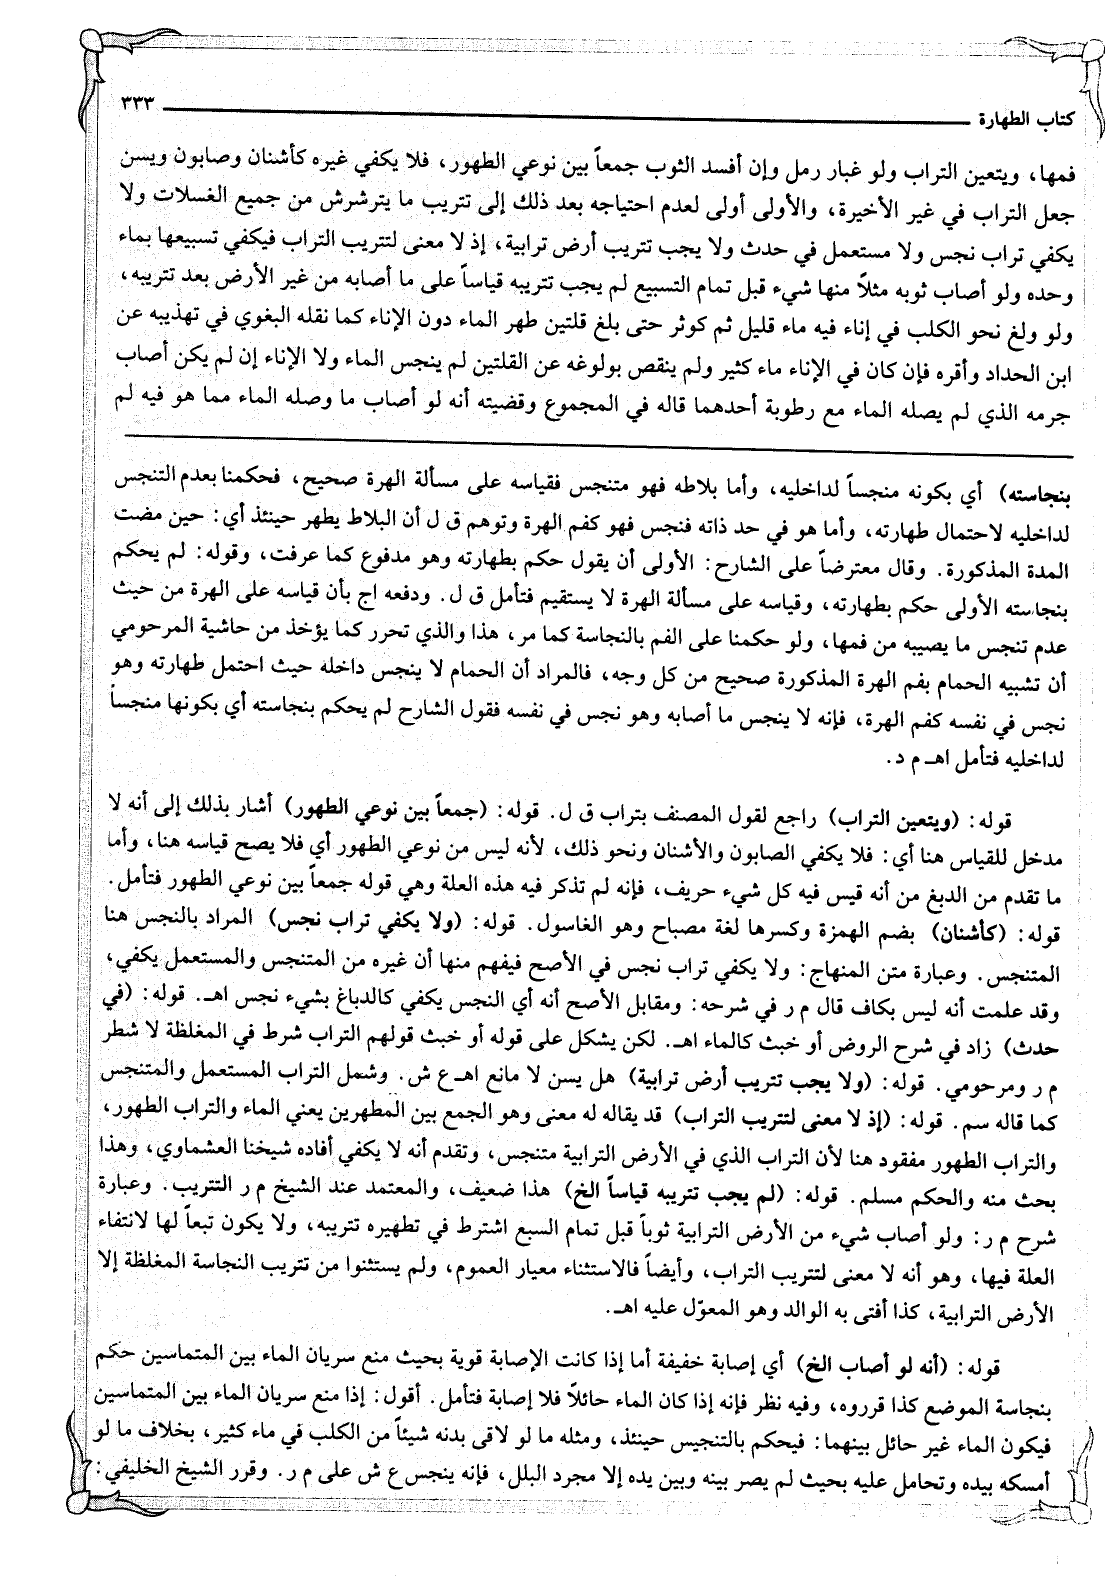 كتاب الطهارة ٣٣٣
فمها، ويتعين التراب ولو غبار رمل وإن أفسد الثوب جمعاً بين نوعي الطهور، فلا يكفي غيره كأشنان وصابون ويسن
جعل التراب في غير الأخيرة، والأولى أولى لعدم احتياجه بعد ذلك إلى تتريب ما يترشرش من جميع الغسلات ولا
يكفي تراب نجس ولا مستعمل في حدث ولا يجب تتريب أرض ترابية، إذ لا معنى لتتريب التراب فيكفي تسبيعها بماء
وحده ولو أصاب ثوبه مثلاً منها شيء قبل تمام التسبيع لم يجب تتريبه قياساً على ما أصابه من غير الأرض بعد تتريبه،
ولو ولغ نحو الكلب في إناء فيه ماء قليل ثم كوثر حتى بلغ قلتين طهر الماء دون الإناء كما نقله البغوي في تهذيبه عن
ابن الحداد وأقره فإن كان في الإناء ماء كثير ولم ينقص بولوغه عن القلتين لم ينجس الماء ولا الإناء إن لم يكن أصاب
جرمه الذي لم يصله الماء مع رطوبة أحدهما قاله في المجموع وقضيته أنه لو أصاب ما وصله الماء مما هو فيه لم
بنجاسته) أي بكونه منجساً لداخليه، وأما بلاطه فهو متنجس فقياسه على مسألة الهرة صحيح، فحكمنا بعدم التنجس
لداخليه لاحتمال طهارته، وأما هو في حد ذاته فنجس فهو كفم الهرة وتوهم ق ل أن البلاط يطهر حينئذ أي: حين مضت
المدة المذكورة. وقال معترضاً على الشارح: الأولى أن يقول حكم بطهارته وهو مدفوع كما عرفت، وقوله: لم يحكم
بنجاسته الأولى حكم بطهارته، وقياسه على مسألة الهرة لا يستقيم فتأمل ق ل. ودفعه اج بأن قياسه على الهرة من حيث
عدم تنجس ما يصيبه من فمها، ولو حكمنا على الفم بالنجاسة كما مر، هذا والذي تحرر كما يؤخذ من حاشية المرحومي
أن تشبيه الحمام بفم الهرة المذكورة صحيح من كل وجه، فالمراد أن الحمام لا ينجس داخله حيث احتمل طهارته وهو
نجس في نفسه كفم الهرة، فإنه لا ينجس ما أصابه وهو نجس في نفسه فقول الشارح لم يحكم بنجاسته أي بكونها منجساً
لداخليه فتأمل اهـ م د.
قوله: (ويتعين التراب) راجع لقول المصنف بتراب ق ل. قوله: (جمعاً بين نوعي الطهور) أشار بذلك إلى أنه لا
مدخل للقياس هنا أي: فلا يكفي الصابون والأشنان ونحو ذلك، لأنه ليس من نوعي الطهور أي فلا يصح قياسه هنا، وأما
ما تقدم من الدبغ من أنه قيس فيه كل شيء حريف، فإنه لم تذكر فيه هذه العلة وهي قوله جمعاً بين نوعي الطهور فتأمل.
قوله: (كأشنان) بضم الهمزة وكسرها لغة مصباح وهو الغاسول. قوله: (ولا يكفي تراب نجس) المراد بالنجس هنا
المتنجس. وعبارة متن المنهاج: ولا يكفي تراب نجس في الأصح فيفهم منها أن غيره من المتنجس والمستعمل يكفي،
وقد علمت أنه ليس بكاف قال م ر في شرحه: ومقابل الأصح أنه أي النجس يكفي كالدباغ بشيء نجس اهـ. قوله: (في
حدث) زاد في شرح الروض أو خبث كالماء اهـ. لكن يشكل على قوله أو خبث قولهم التراب شرط في المغلظة لا شطر
م ر ومرحومي. قوله: (ولا يجب تتريب أرض ترابية) هل يسن لا مانع اهـ ع ش. وشمل التراب المستعمل والمتنجس
كما قاله سم. قوله: (إذ لا معنى لتتريب التراب) قد يقاله له معنى وهو الجمع بين المطهرين يعني الماء والتراب الطهور،
والتراب الطهور مفقود هنا لأن التراب الذي في الأرض الترابية متنجس، وتقدم أنه لا يكفي أفاده شيخنا العشماوي، وهذا
بحث منه والحكم مسلم. قوله: (لم يجب تتريبه قياساً الخ) هذا ضعيف، والمعتمد عند الشيخ م ر التتريب. وعبارة
شرح م ر: ولو أصاب شيء من الأرض الترابية ثوباً قبل تمام السبع اشترط في تطهيره تتريبه، ولا يكون تبعاً لها لانتفاء
العلة فيها، وهو أنه لا معنى لتتريب التراب، وأيضاً فالاستثناء معيار العموم، ولم يستثنوا من تتريب النجاسة المغلظة إلا
الأرض الترابية، كذا أفتى به الوالد وهو المعوّل عليه اهـ.
قوله: (أنه لو أصاب الخ) أي إصابة خفيفة أما إذا كانت الإصابة قوية بحيث منع سريان الماء بين المتماسين حكم
بنجاسة الموضع كذا قرروه، وفيه نظر فإنه إذا كان الماء حائلاً فلا إصابة فتأمل. أقول: إذا منع سريان الماء بين المتماسين
فيكون الماء غير حائل بينهما: فيحكم بالتنجيس حينئذ، ومثله ما لو لاقى بدنه شيئاً من الكلب في ماء كثير، بخلاف ما لو
أمسكه بيده وتحامل عليه بحيث لم يصر بينه وبين يده إلا مجرد البلل، فإنه ينجس ع ش على م ر. وقرر الشيخ الخليفي: